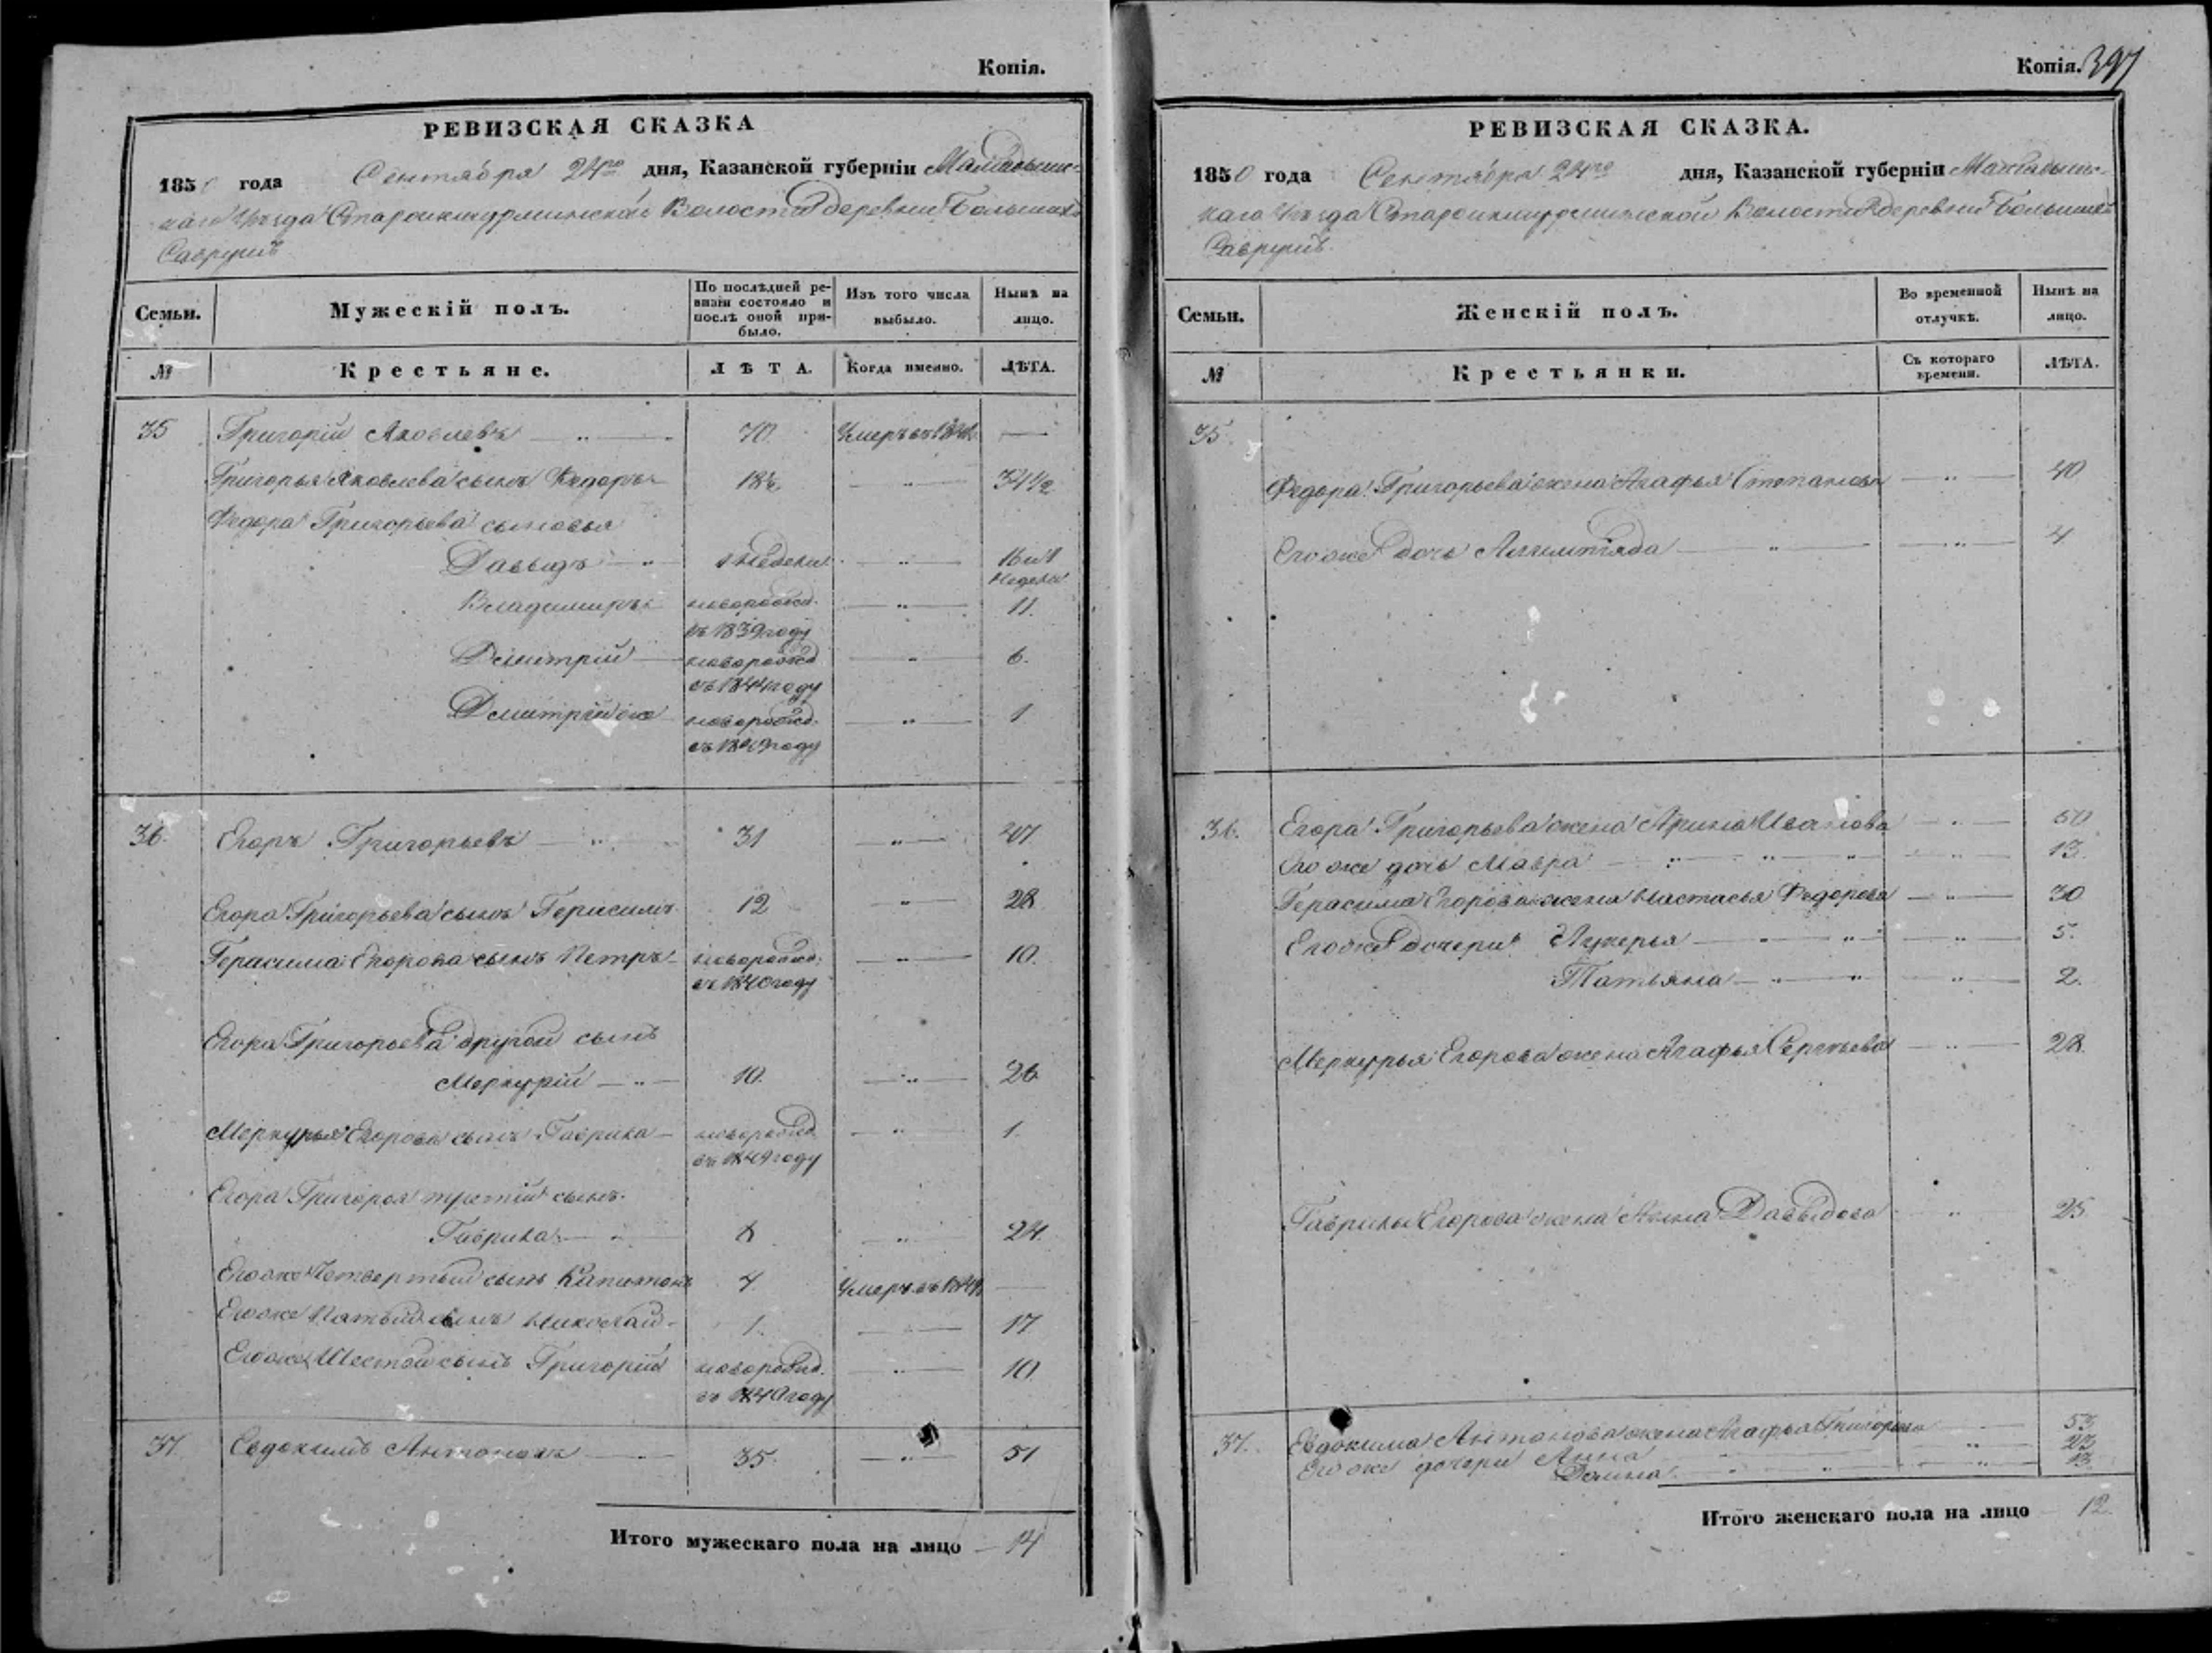 Копія.
РЕВИЗСКАЯ СКАЗКА
1850 года Сентября 24го дня, Казанской губерніи Мамадышс-
каго Уѣзда Старопкишурминской Волости деревни Большихъ
Саврушъ
Семьи. Мужескій полъ. По послѣдней ревизіи состояло и послѣ оной прибыло. Изъ того числа выбыло. Нынѣ на лицо.
№ Крестьяне. ЛѢТА. Когда именно. ЛѢТА.
35 Григорій Яковлевъ 70. Умеръ въ —
Григорья Яковлева сынъ Федоръ 18½ 34½
Федора Григорьева сыновья
Давыдъ 1 недели 16 и 1 недели
Владимиръ новорожд. въ 1839 году 11.
Дмитрій новорожд въ 1844 году 6.
Дмитрій же новорожд. въ 1849 году 1
36. Егоръ Григорьевъ 31 47
Егора Григорьева сынъ Герасимъ 12 28
Герасима Егорова сынъ Петръ новорожд. въ 1840 году 10.
Егора Григорьева другой сынъ
Меркурій 10. 26
Меркурья Егорова сынъ Гаврила новорожд въ 1849 году 1.
Егора Григорья третій сынъ.
Гаврила 8 24.
Его же Четвертый сынъ Капитонъ 4. Умеръ въ —
Его же Пятый сынъ Николай 1. 17
Его же Шестой сынъ Григорій новорожд. въ 1840 году 10.
37. Евдокимъ Антоновъ 35. 51
Итого мужескаго пола на лицо 14
Копія. 397
РЕВИЗСКАЯ СКАЗКА.
1850 года Сентября 24го дня, Казанской губерніи Мамадышс-
каго Уѣзда Волости деревни Большихъ
Саврушъ.
Семьи. Женскій полъ. Во временной отлучкѣ. Нынѣ на лицо.
№ Крестьянки. Съ котораго времени. ЛѢТА.
35.
Федора Григорьева жена Агафья Степанова 40
Его же дочь 4
36. Егора Григорьева жена Арина Иванова 50
Его же дочь Мавра 13.
Герасима Егорова жена Настасья Федорова 30
Его же дочери Лукерья 5.
Татьяна 2.
Меркурья Егорова жена Агафья Сергѣева 28.
Гаврилы Егорова жена Анна Давыдова 25
37. Евдокима Антонова жена Агафья Григорьева 53
Его же дочери Анна 23
Домна 13.
Итого женскаго пола на лицо 12